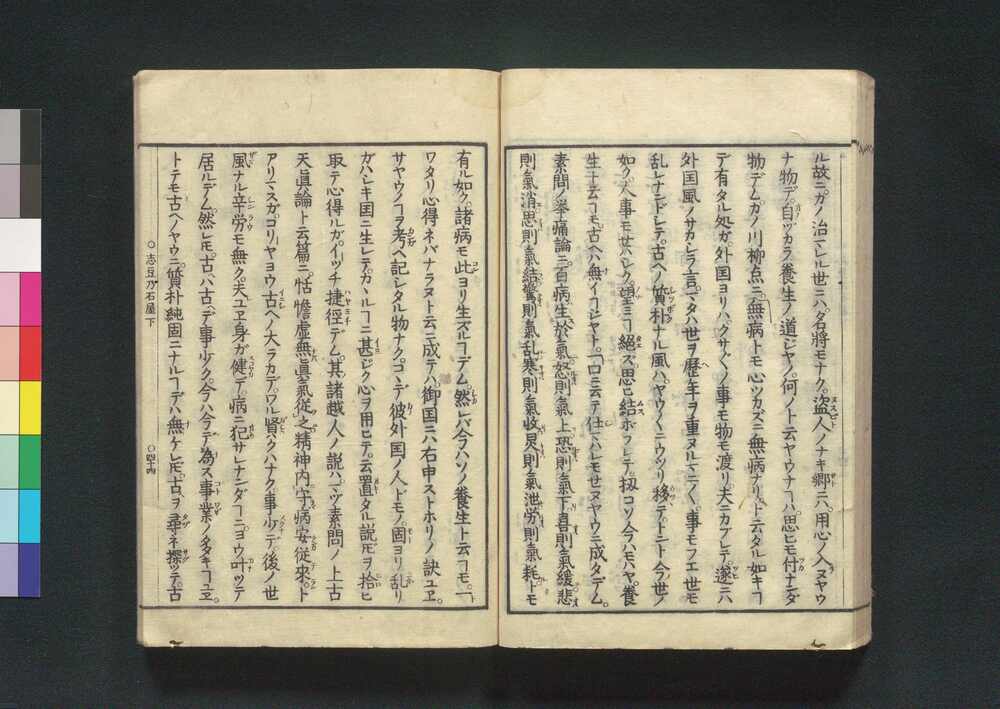 ル故ニガノ治マレル世ニハ名將モナク盗人ノナキ郷ニハ用心ノ入ヌヤウ
ナ物デ自ヅカラ養生ノ道ジヤノ何ノト云ヤウナヿハ思ヒモ付ナンダ
物デムカノ川柳点ニ無病トモ心ツカズニ無病ナリト云タル如キヿ
デ有タル処ガ外国ヨリハクサ〴〵ノ事モ物モ渡リ夫ニカブレテ遂ニハ
外国風ノサカシラ言ヿタハ世ヲ歴年ヲ重ヌルマニ〳〵事モフエ世モ
乱レナンドシテ古ヘノ質朴ナル風ハヤウ〳〵ニウツリ移テトント今世ノ
如ク人事モセハシク望ミヿ絶ズ思ヒ結ボフレテ扨コソ今ハモハヤ養
生ト云ヿモ古ヘハ無イヿジヤト口ニ云テ仕ハレモセヌヤウニ成タデム
素問ノ挙痛論ニ百病生於氣怒則氣上恐則氣下喜則氣緩悲
則氣消思則氣結驚則氣乱寒則氣收炅則氣泄労則氣耗トモ
有ル如ク諸病モ此ヨリ生ズルヿデム然レバ今ハソノ養生ト云ヿモ一
ワタリ心得ネバナラヌト云ニ成テハ御国ニハ右申ストホリノ訣ユヱ
サヤウノヿヲ考ヘ記シタル物ナクコヽデ彼外国ノ人ドモノ固ヨリ乱リ
ガハシキ国ニ生レテカヽルヿニ甚ジク心ヲ用ヒテ云置タル説𪜈ヲ拾ヒ
取テ心得ルガイツチ捷徑デム其諸越人ノ説ハマヅ素問ノ上古
天眞論ト云篇ニ恬憺虚無眞氣從之精神内守病安従来ト
アリマスガゴリヤヨウ古ヘノ大ラカデワル賢ハクハナク事少テ後ノ世
風ナル辛労モ無ク夫ユヱ身ガ健デ病ニ犯サレナンダヿニヨウ叶ツテ
居ルデム然レ𪜈古ハ古デ事少ク今ハ今デ為ス事業ノ多キヿユヱ
トテモ古ヘノヤウニ質朴純固ニナルヿデハ無ケレ𪜈古ヲ尋ネ探ツテ古
○志豆乃石屋下
○四十四